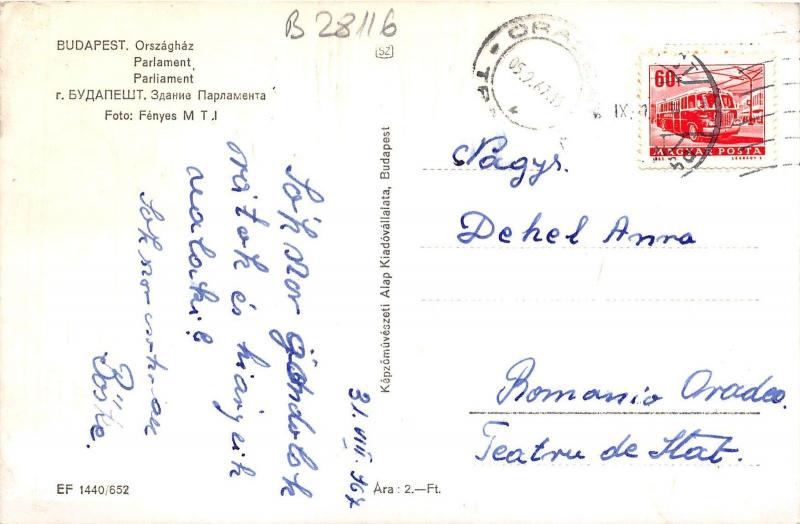 B 28116
BUDAPEST. Országház
Parlament
Parliament
г. БУДАПЕШТ. Здание Парламента
Foto: Fényes M T I
SZ
60f
MAGYAR POSTA
Sokszor gondolok
rátok és hiányzik
valaki!
Sokszor csókolom
Böske.
31. VIII. 967
Képzőművészeti Alap Kiadóvállalata, Budapest
Nagys.
Dehel Anna
Romania Oradea
Teatru de Stat.
EF 1440/652
Ára : 2.—Ft.